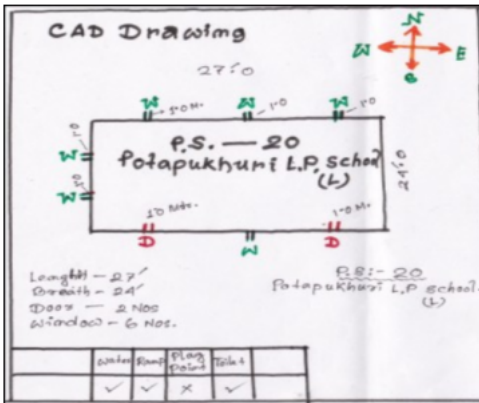 CAD Drawing
N
W E
S
27'.0
W W W
1.0 M. 1.0 1.0
W 1.0
W 1.0
P.S. — 20
Potapukhuri L.P. School
(L)
24'.0
10 Mtr. 1.0 M.
D W D
Lenght - 27'
Breath - 24'
Door — 2 Nos
Window - 6 Nos.
P.S:- 20
Potapukhuri L.P School.
(L)
Water Ramp Play Point Toilet
✓ ✓ × ✓